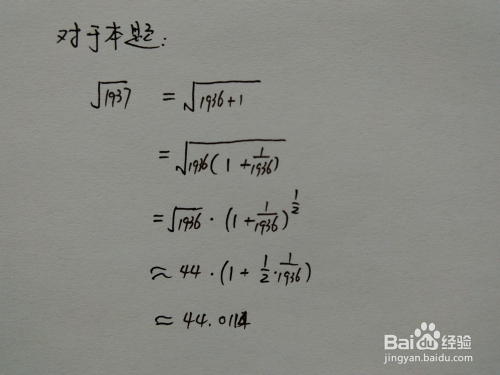 对于本题:
√1937 = √1936+1
= √1936(1+1/1936)
= √1936·(1+1/1936)^1/2
≈ 44·(1+1/2·1/1936)
≈ 44.0114
Baidu经验
jingyan.baidu.com